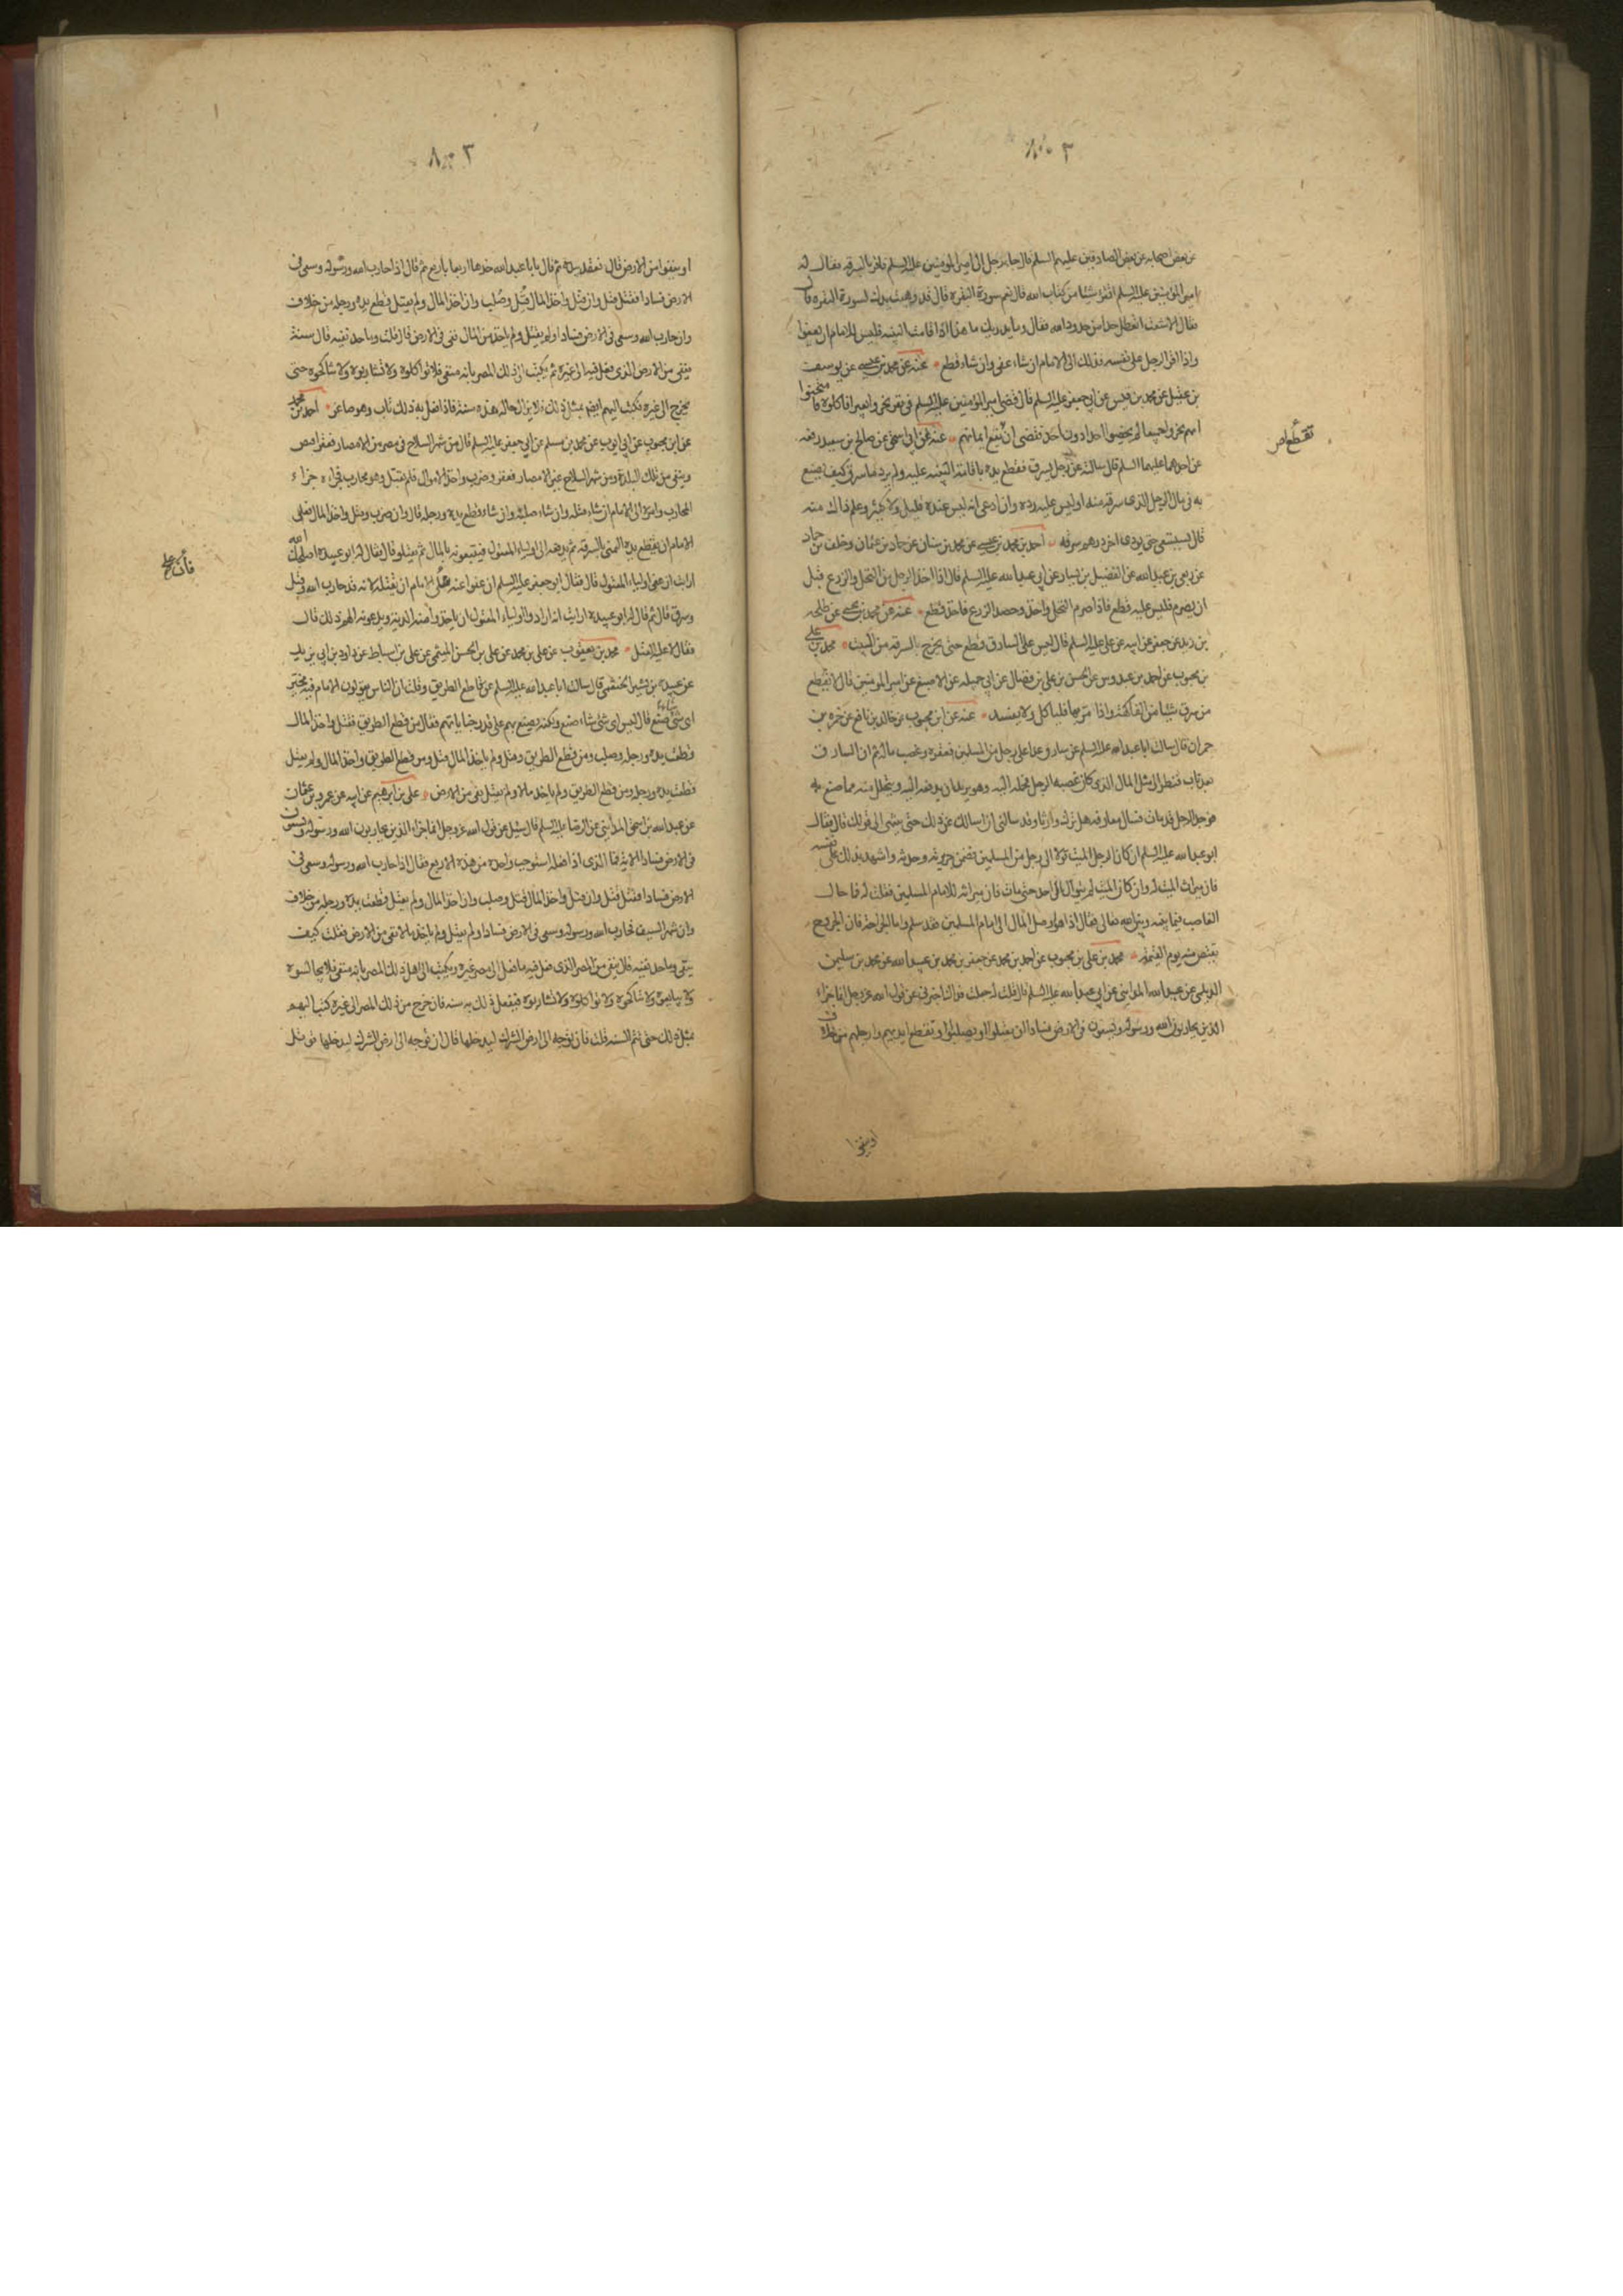 ٨٠٣
عن بعض اصحابه عن بعض الصادقين عليهم السلم قال جاء رجل الى امير المومنين عليه السلم فاقر بالسرقه فقال له
امير المومنين عليه السلم اتقرء شيئا من كتاب الله قال نعم سورة البقره قال قد وهبت يدك لسورة البقره قال
فقال الاشعث اتعطل حدا من حدود الله فقال وما يدريك ما هذا اذا قامت البينه فليس للامام ان يعفوا
واذا اقر الرجل على نفسه فذلك الى الامام ان شاء عفى وان شاء قطع عنه عن محمد بن عيسى عن يوسف
بن عقيل عن محمد بن قيس عن ابي جعفر عليه السلم قال قضى امير المومنين عليه السلم في نفر نحروا بعيرا فاكلوه فامتحنوا
ايهم نحر ولم يخصوا احدا دون احد فقضى ان تقطع ايمانهم عنه عن ابي اسحق عن صالح بن سعيد رفعه
تقطع
عن احدهما عليهما السلم قال سالته عن رجل يسرق فقطع يده باقامة البينه عليه ولم يرد ما سرق كيف يصنع
به في مال الرجل الذى سرقه منه اوليس عليه رده وان ادعى انه ليس عنده قليل ولا كثير وعلم ذلك منه
قال يستسعى حتى يودى اخر درهم سرقه احمد بن محمد بن عيسى عن محمد بن سنان عن حماد بن عثمان وخلف بن حماد
عن ربعي بن عبد الله عن الفضيل بن يسار عن ابي عبد الله عليه السلم قال اذا اخذ الرجل من النخل والزرع قبل
ان يصرم فليس عليه قطع فاذا صرم النخل واخذ وحصد الزرع فاخذ قطع عنه عن محمد بن يحيى عن طلحه
بن زيد عن جعفر عن ابيه عن على عليه السلم قال ليس على السارق قطع حتى يخرج بالسرقه من البيت محمد بن على
بن محبوب عن احمد بن عبدوس عن الحسن بن على بن فضال عن ابي جميله عن الاصبغ عن امير المومنين قال لا يقطع
من سرق شيئا من الفاكهة واذا مر بها فلياكل ولا يفسد عنه عن ابن محبوب عن خالد بن نافع عن حمزه بن
حمران قال سالت ابا عبد الله عليه السلم عن سارق عدا على رجل من المسلمين فعقره وغصب ماله ثم ان السارق
بعد تاب فنظر الى مثل المال الذى كان غصبه الرجل فحمله اليه وهو يريد ان يدفعه اليه ويتحلل منه مما صنع به
فوجد الرجل قد مات فسال معارفه هل ترك وارثا وقد سالني ان اسالك عن ذلك حتى ينتهى الى قولك قال فقال
ابو عبد الله عليه السلم ان كان الرجل الميت توالى الى رجل من المسلمين فضمن جريرته وحدثه واشهد بذلك على نفسه
فان ميراث الميت له وان كان الميت لم يتوال الى احد حتى مات فان ميراثه للامام المسلمين فقلت له فما حال
الغاصب فيما بينه وبين الله تعالى فقال اذا هو اوصل المال الى امام المسلمين فقد سلم واما الجراحة فان الجروح
يقتص منه يوم القيمه محمد بن على بن محبوب عن احمد بن محمد عن جعفر بن محمد بن عبيد الله عن محمد بن سليمن
الديلمى عن عبد الله المدايني عن ابي عبد الله عليه السلم قال قلت له جعلت فداك اخبرني عن قول الله عز وجل انما جزاء
الذين يحاربون الله ورسوله ويسعون في الارض فسادا ان يقتلوا او يصلبوا او تقطع ايديهم وارجلهم من خلاف
او ينفوا
٨٠٣
او ينفوا من الارض قال فعقد بيده ثم قال يا با عبد الله خذها اربعا باربع ثم قال اذا حارب الله ورسوله وسعى في
الارض فسادا فقتل قتل وان قتل واخذ المال قتل وصلب وان اخذ المال ولم يقتل قطع يده ورجله من خلاف
وان حارب الله وسعى في الارض فسادا ولم يقتل ولم ياخذ من المال نفى في الارض قال قلت وما حد نفيه قال سنة
ينفى من الارض الذى فعل فيه الى غيره ثم يكتب الى ذلك المصر بانه منفى فلا تواكلوه ولا تشاربوه ولا تناكحوه حتى
يخرج الى غيره فيكتب اليهم ايضا بمثل ذلك فلا يزال حاله هذه سنة فاذا فعل به ذلك تاب وهو صاغر احمد بن محمد
عن ابن محبوب عن ابي ايوب عن محمد بن مسلم عن ابي جعفر عليه السلم قال من شهر السلاح في مصر من الامصار فعقر اقتص
ونفى من تلك البلدة ومن شهر السلاح غير الامصار فعقر وضرب واخذ الاموال ولم يقتل وهو محارب فجزاه جزاء
المحارب وامره الى الامام ان شاء قتله وان شاء صلبه وان شاء قطع يده ورجله قال وان ضرب وقتل واخذ المال فعلى
الامام ان يقطع يده اليمنى بالسرقه ثم يدفعه الى اولياء المقتول فيتبعونه بالمال ثم يقتلوه قال فقال له ابو عبيده اصلحك الله
ارايت ان عفى اولياء المقتول قال فقال ابو جعفر عليه السلم ان عفوا عنه فعلى الامام ان يقتله لانه قد حارب الله وقتل
فان على
وسرق قال ثم قال له ابو عبيده ارايت ان ارادوا اولياء المقتول ان ياخذوا منه الدية ويدعونه الهم ذلك قال
فقال لا عليه القتل محمد بن يعقوب عن على بن محمد عن على بن الحسن الميثمى عن على بن اسباط عن داود بن ابي يزيد
عن عبيده بن بشير الخثعمى قال سالت ابا عبد الله عليه السلم عن قاطع الطريق وقلت ان الناس يقولون الامام فيه مخير
اى شئ شاء صنع قال ليس اى شئ شاء صنع ولكنه يصنع بهم على قدر جناياتهم فقال من قطع الطريق فقتل واخذ المال
قطعت يده ورجله وصلب ومن قطع الطريق وقتل ولم ياخذ المال قتل ومن قطع الطريق واخذ المال ولم يقتل
قطعت يده ورجله ومن قطع الطريق ولم ياخذ مالا ولم يقتل نفى من الارض على بن ابرهيم عن ابيه عن عمرو بن عثمان
عن عبد الله بن اسحق المدايني عن الرضا عليه السلم قال سئل عن قول الله عز وجل انما جزاء الذين يحاربون الله ورسوله ويسعون
في الارض فسادا الاية فما الذى اذا فعله استوجب واحده من هذه الاربع فقال اذا حارب الله ورسوله وسعى في
الارض فسادا فقتل قتل وان قتل واخذ المال قتل وصلب وان اخذ المال ولم يقتل قطعت يده ورجله من خلاف
وان شهر السيف فحارب الله ورسوله وسعى في الارض فسادا ولم يقتل ولم ياخذ مالا نفى من الارض فقلت كيف
ينفى وما حد نفيه قال ينفى من المصر الذى فعل فيه ما فعل الى مصر غيره ويكتب الى اهل ذلك المصر بانه منفى فلا تجالسوه
ولا تبايعوه ولا تناكحوه ولا تواكلوه ولا تشاربوه فيفعل ذلك به سنه فان خرج من ذلك المصر الى غيره كتب اليهم
بمثل ذلك حتى تتم السنه قلت فان توجه الى ارض الشرك ليدخلها قال ان توجه الى ارض الشرك ليدخلها قوتل